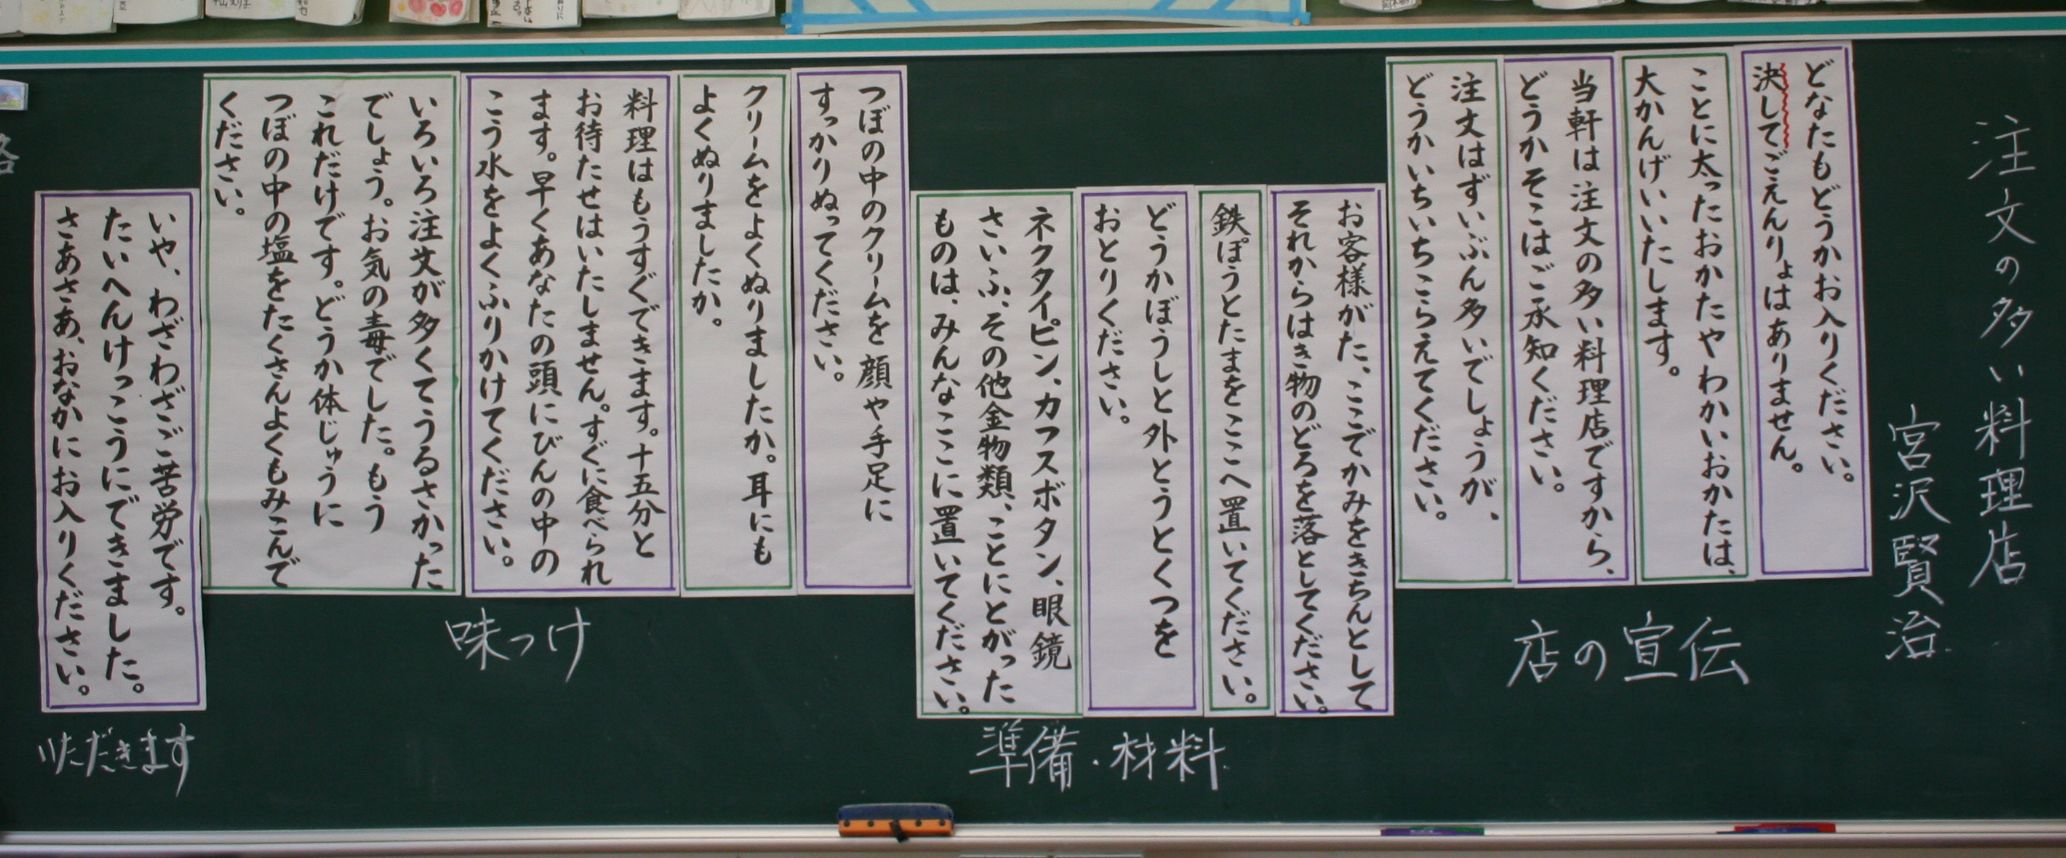 注文の多い料理店
宮沢賢治
どなたもどうかお入りください。
決してごえんりょはありません。
ことに太ったおかたやわかいおかたは、
大かんげいいたします。
当軒は注文の多い料理店ですから、
どうかそこはご承知ください。
注文はずいぶん多いでしょうが、
どうかいちいちこらえてください。
店の宣伝
お客様がた、ここでかみをきちんとして
それからはき物のどろを落としてください。
鉄ぽうとたまをここへ置いてください。
どうかぼうしと外とうとくつを
おとりください。
ネクタイピン、カフスボタン、眼鏡
さいふ、その他金物類、ことにとがった
ものは、みんなここに置いてください。
準備・材料
つぼの中のクリームを顔や手足に
すっかりぬってください。
クリームをよくぬりましたか。耳にも
よくぬりましたか。
料理はもうすぐできます。十五分と
お待たせはいたしません。すぐに食べられ
ます。早くあなたの頭にびんの中の
こう水をよくふりかけてください。
いろいろ注文が多くてうるさかった
でしょう。お気の毒でした。もう
これだけです。どうか体じゅうに
つぼの中の塩をたくさんよくもみこんで
ください。
味つけ
いや、わざわざご苦労です。
たいへんけっこうにできました。
さあさあ、おなかにお入りください。
いただきます